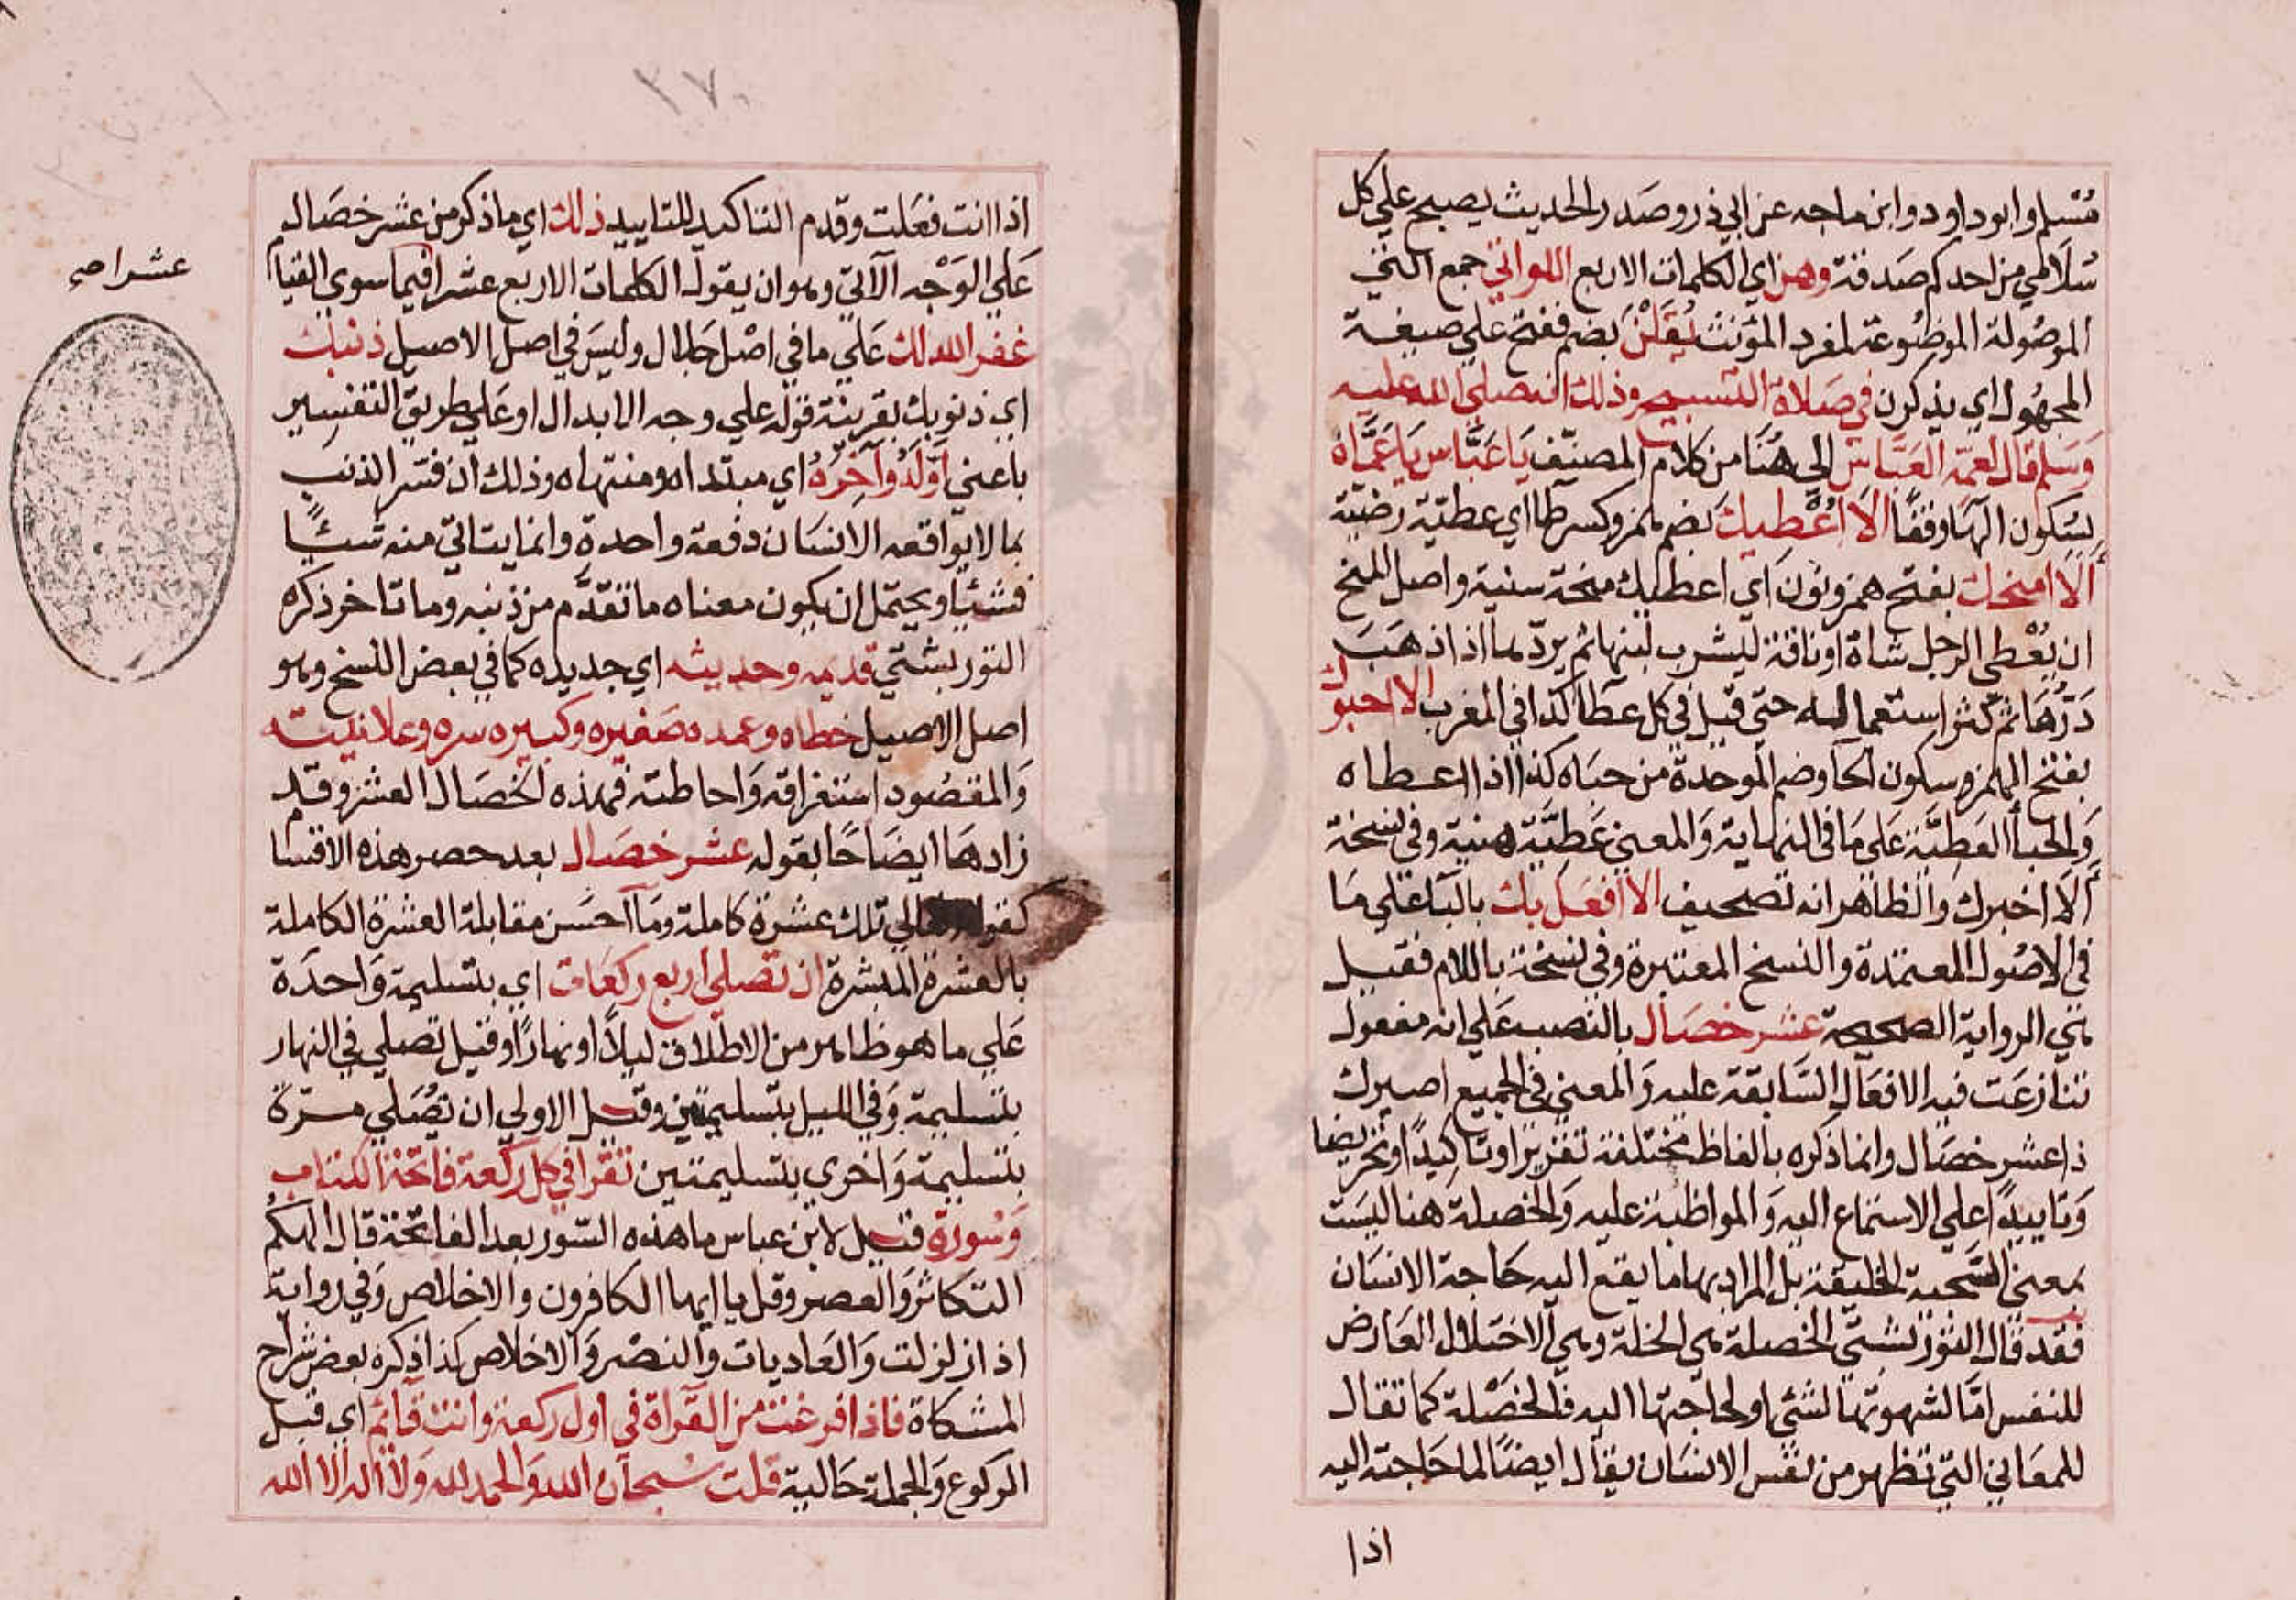 مسلم وابوداود وابن ماجه عن ابي ذر وصدر الحديث يصبح علي كل
سلامي من احدكم صدقة وهن اي الكلمات الاربع اللواتي جمع التي
الموصولة الموضوعة لمفرد المؤنث يُقَلْنَ بضم ففتح علي صيغة
المجهول اي يذكرن في صلاة التسبيح وذلك انه صلي الله عليه
وَسلم قال لعمّه العبّاس الي هُنَا من كلام المصنّف يَا عَبَّاس يَا عَمَّاهُ
بسكون الهَا وقفًا الَا اُعْطيكَ بضم همز وكسر طا اي عطيّة رضيّة
أَلَا امنحك بفتح همز ونون اي اعطيك منحة سنية واصل المنح
ان يُعْطي الرجل شاة او ناقة ليشرب لبنها ثم يردّها اذا ذهَبَ
دَرُّهَا ثم كثر استعماله حتي قيل في كل عطآ كذا في المغرب الا احبوك
بفتح الهمز وسكون الحا وضم الموحدة من حباه كذا اذا اعطاه
وَالحبأ العَطِيَّة عَلي مَا في النهاية وَالمعني عَطِيَّة هنية وفي نسخة
أَلَا اخبرك والظاهر انه تصحيف الا افعَل بك بالبَا عَلي مَا
في الاصُول المعتمدة والنسخ المعتبرة وفي نسخة باللام فقيل
هي الرواية الصحيحة عشر خصَال بالنصب عَلي انه مفعول
تنازعَت فيه الافعَال السَّابقة عليه وَالمعني في الجميع اصيرك
ذا عشر خصَال وانما ذكره بالفاظ مختلفة تقريرا وتاكيدًا وتحريضا
وَتاييدًا علي الاستماع اليه وَالمواظبة عليه وَالخصلة هنا ليسَت
بمعني السَّجية الخليقة بل المراد بها ما يقع اليه حَاجة الانسَان
فقد قال التوربشتيّ الخصلة هي الخلة وهي الاختلال العَارض
للنفس امّا لشهوتها لشئ او لحاجتها اليه فالخصْلة كما تقال
للمعَاني التي تظهر من نفس الانسَان يقال ايضًا لما حَاجته اليه
اذا
٢٧٠
اذا انت فعَلت وقدم التاكيد للتاييد ذلك اي ما ذكر من عشر خصَال
عَلي الوَجْه الآتي وهو ان يقول الكلمات الاربع عشرا فيما سوي القيام
غفر الله لك عَلي ما في اصْل جَلال وليسَ في اصل الاصيل ذنبك
اي ذنوبك بقرينة قوله علي وجه الابدال او عَلي طريق التفسير
باعني أوَّلَهُ وَآخِرَهُ اي مبتداه ومنتهاه وذلك ان فسّر الذنب
بما لا يواقعه الانسَان دفعة واحدة وانما يتاتي منه شيئًا
فشيئًا ويحتمل ان يكون معناه ما تقدَّم من ذنبه وما تاخر ذكره
التوربشتي قديمه وحديثه اي جديده كما في بعض النسخ وهو
اصل الاصيل خطاه وعمده صَغيره وكبيره سره وعلانيته
وَالمقصُود استغراقه وَاحاطته فهذه الخصَال العشر وقد
زادهَا ايضَاحًا بقوله عشر خصَال بعد حصر هذه الاقسا
كقوله تعالي تلك عشرة كاملة ومَا احسَن مقابلة العشرة الكاملة
بالعشرة المبشرة ان تصلي اربع ركعَات اي بتسليمة وَاحدَة
عَلي ما هو ظاهر من الاطلاق ليلًا او نهارًا وقيل تصلي في النهار
بتسليمة وَفي الليل بتسليمتين وقيل الاولي ان تصُلي مرّة
بتسليمة وَاخري بتسليمتين تقرا في كل ركعة فاتحة الكتاب
وَسُورة قيل لابن عباس ما هذه السّور بعد الفاتحة قال الهكم
التكاثر وَالعصر وقل يا ايها الكافرون والاخلاص وَفي رواية
اذا زلزلت وَالعَاديات وَالنصْر وَالاخلاص كذا ذكره بعض شراح
المشكاة فاذا فرغت من القراة في اول ركعة وانت قائم اي قبل
الركوع وَالجملة حَالية قلت سُبحان الله وَالحمد لله وَلا اله الا الله
عشرا صح